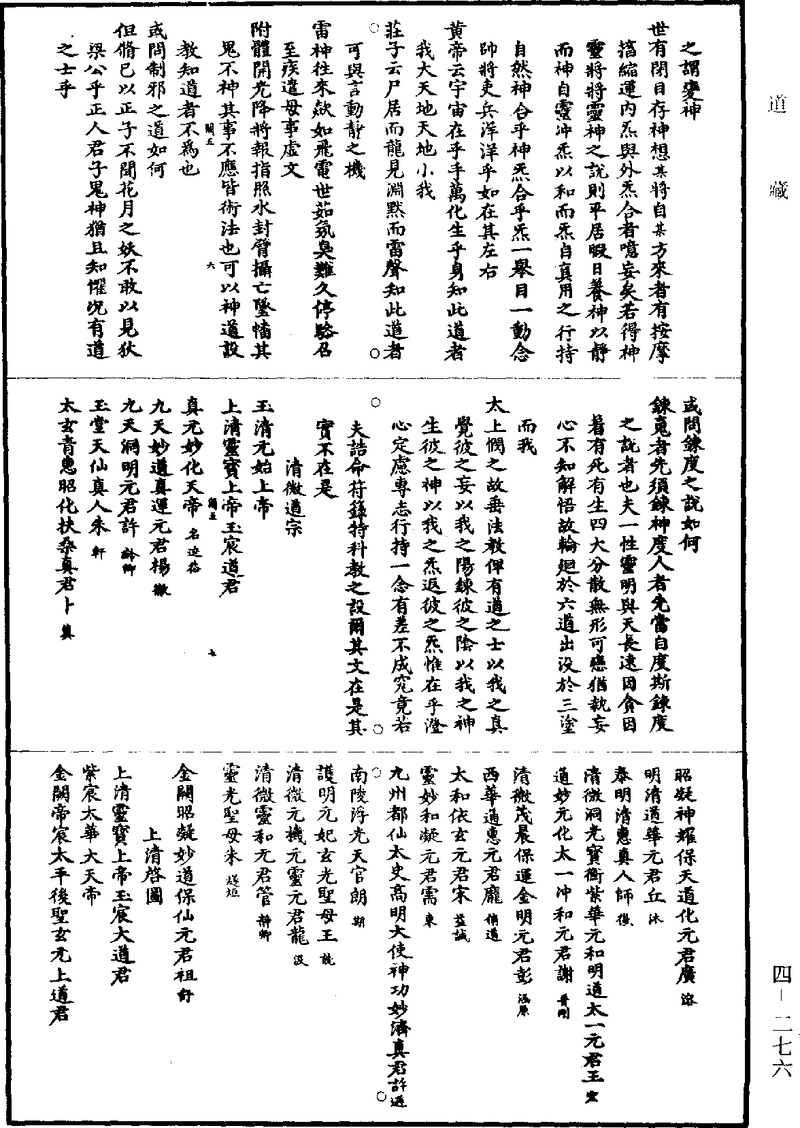 道藏
之謂變神
世有閉目存神想某將自某方來者有按摩
搐縮運內炁與外炁合者噫妄矣若得神
靈將將靈神之說則平居暇日養神以靜
而神自靈沖炁以和而炁自真用之行持
自然神合乎神炁合乎炁一舉目一動念
帥將吏兵洋洋乎如在其左右
黃帝云宇宙在乎手萬化生乎身知此道者
我大天地天地小我
莊子云尸居而龍見淵默而雷聲知此道者
可與言動靜之機
雷神往來歘如飛電世茹氛臭難久停駱召
至疾遣毋事虛文
附體開光降將報指照水封臂攝亡墜幡其
鬼不神其事不應皆術法也可以神道設
教知道者不為也
或問制邪之道如何
但脩己以正子不聞花月之妖不敢以見狄
梁公乎正人君子鬼神猶且知懼況有道
之士乎
六
或問鍊度之說如何
鍊䰟者先須鍊神度人者先當自度斯鍊度
之說者也夫一性靈明與天長遠因貪因
着有死有生四大分散無形可戀猶執妄
心不知解悟故輪廻於六道出沒於三塗
而我
太上憫之故垂法教俾有道之士以我之真
覺彼之妄以我之陽鍊彼之陰以我之神
生彼之神以我之炁返彼之炁惟在乎澄
心定慮專志行持一念有差不成究竟若
夫誥命符籙特科教之設爾其文在是其
實不在是
清微道宗
玉清元始上帝
上清靈寶上帝玉宸道君
真元妙化天帝
九天妙道真運元君楊
九天洞明元君許
玉堂天仙真人朱 軒
太玄青惠昭化扶桑真君卜
七
昭凝神燿保天道化元君廣
明清道華元君丘
泰明清惠真人師
清微洞光寶衡紫華元和明道太一元君王
道妙元化太一沖和元君謝
清微茂晨保運金明元君彭
西華通惠元君龐
太和依玄元君宋 益誠
靈妙和凝元君需
九州都仙太史高明大使神功妙濟真君許遜
南陵浮光天官朗
護明元妃玄光聖母王
清微元機元靈元君龍
清微靈和元君管
靈光聖母朱
金闕昭凝妙道保仙元君祖 舒
上清啓圖
上清靈寶上帝玉宸大道君
紫宸太華大天帝
金闕帝宸太平後聖玄元上道君
四－二七六